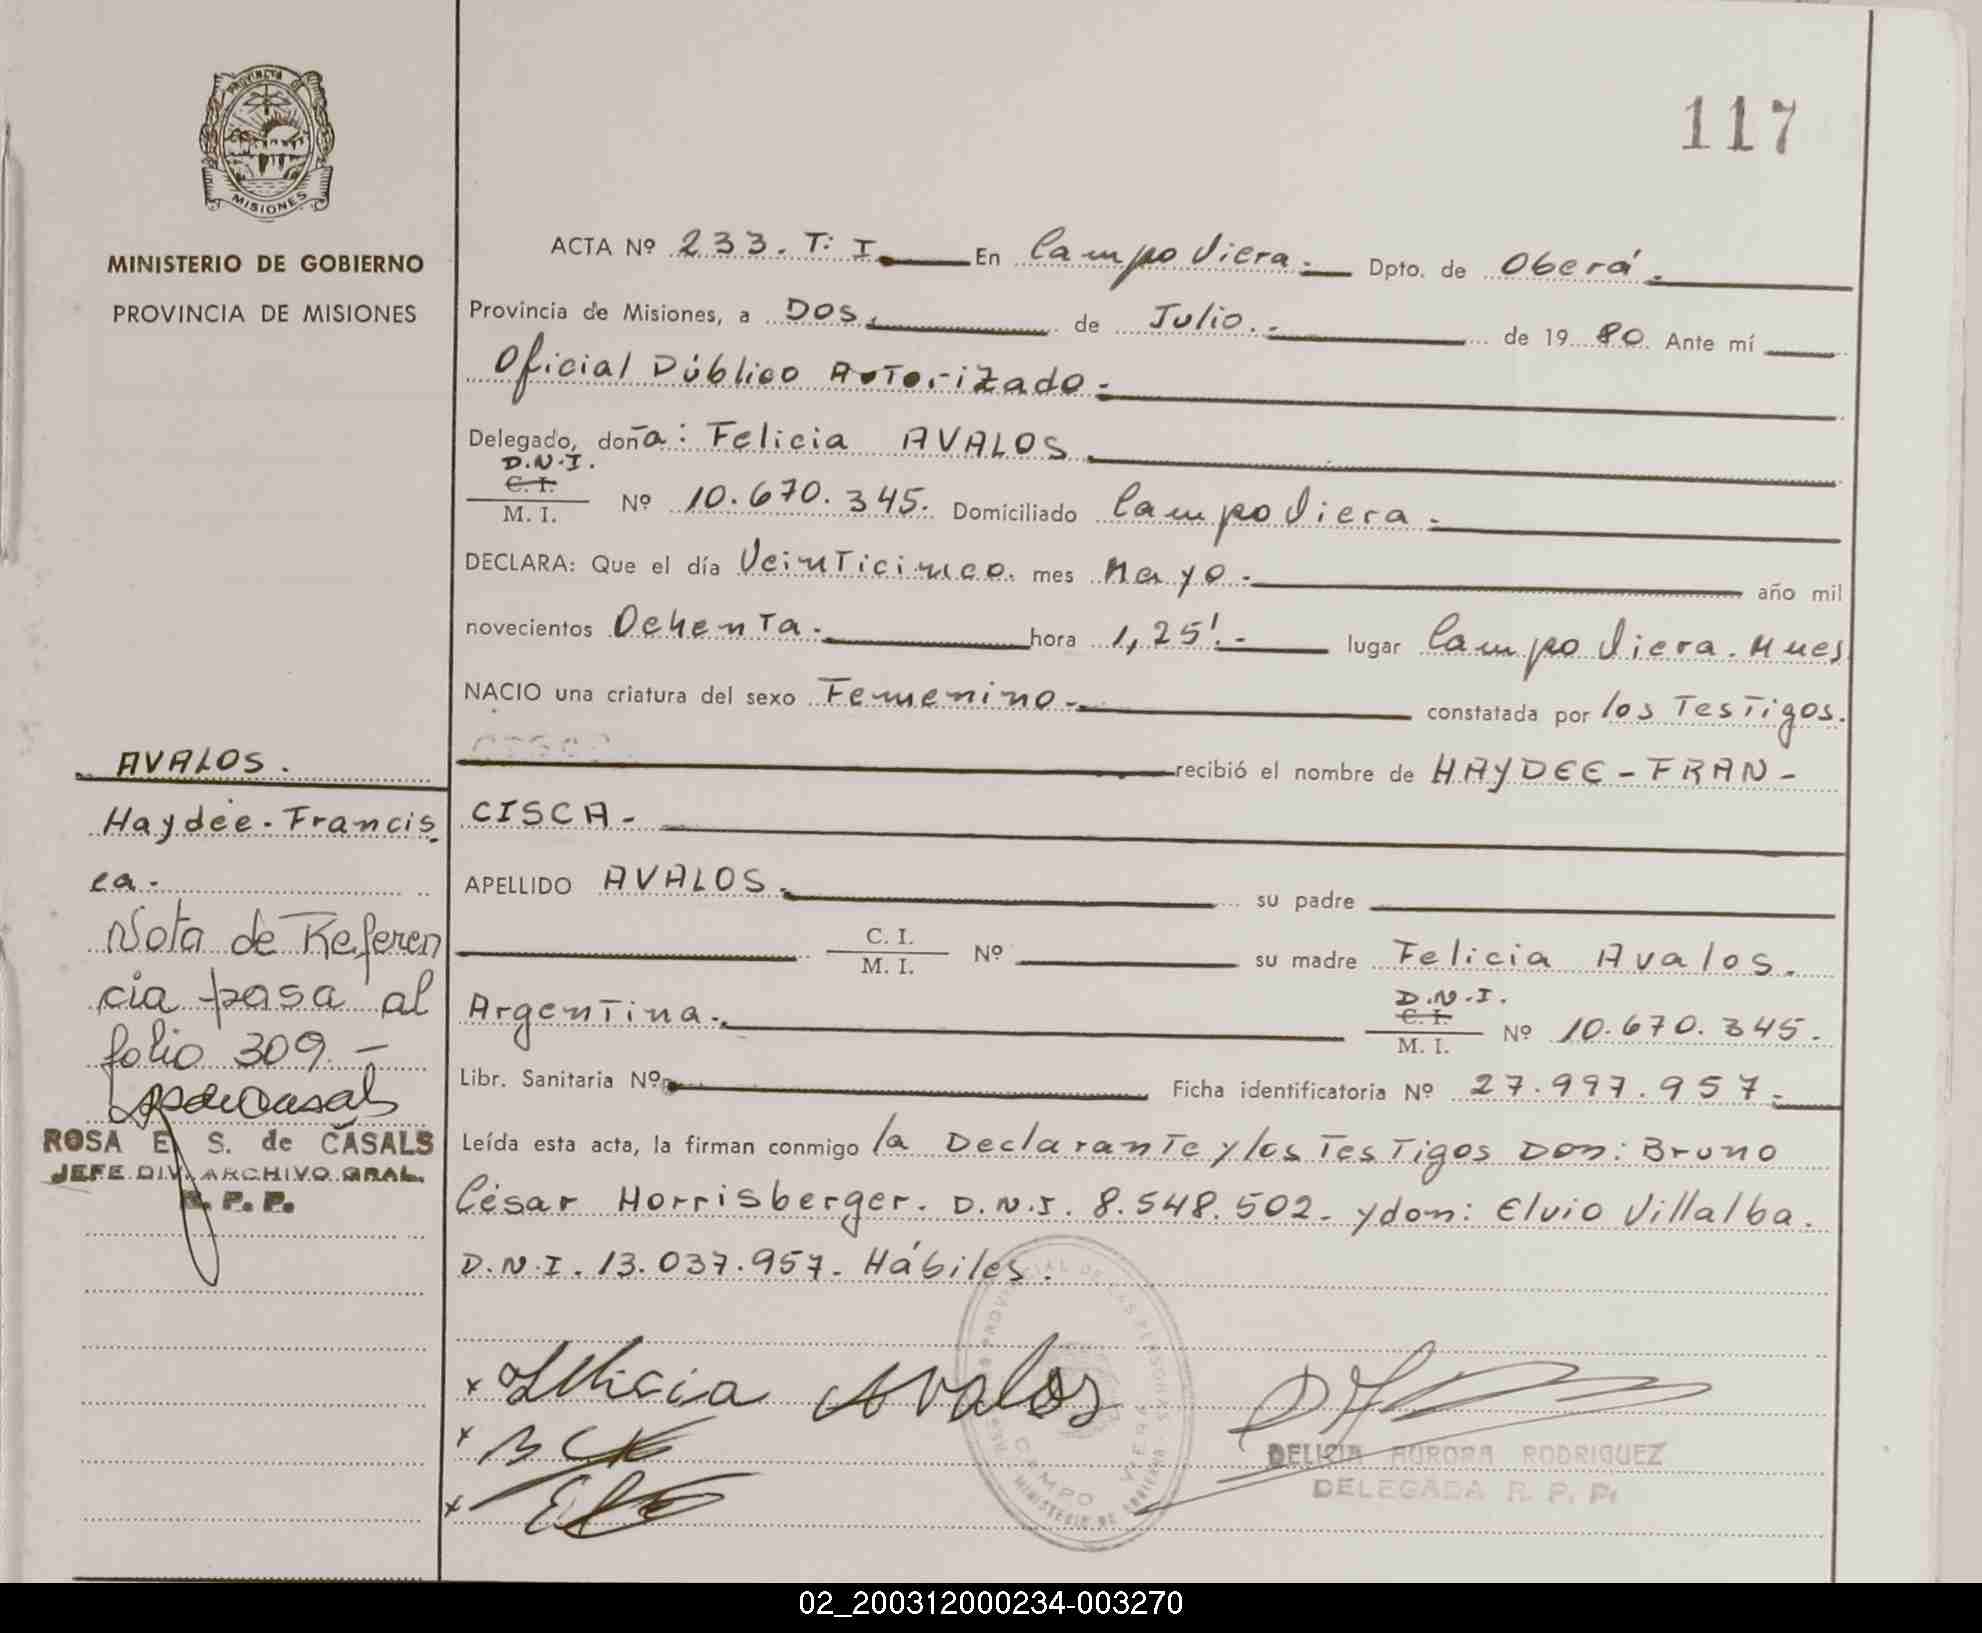 117
PROVINCIA DE
MISIONES
MINISTERIO DE GOBIERNO
PROVINCIA DE MISIONES
ACTA Nº 233. T: I. En Campo Viera. Dpto. de Oberá.
Provincia de Misiones, a DOS. de Julio. de 19 80. Ante mí
Oficial Público Autorizado.
Delegado, doña: Felicia AVALOS
D.N.I.
C. I.
M. I. Nº 10.670.345. Domiciliado Campo Viera.
DECLARA: Que el día Veinticinco. mes Mayo. año mil
novecientos Ochenta. hora 1,25'. lugar Campo Viera. Mnes
NACIO una criatura del sexo Femenino. constatada por los Testigos.
recibió el nombre de HAYDEE - FRAN -
CISCA -
APELLIDO AVALOS. su padre
C. I.
M. I. Nº su madre Felicia Avalos.
Argentina. D.N.I.
C. I.
M. I. Nº 10.670.345.
Libr. Sanitaria Nº Ficha identificatoria Nº 27.997.957.
Leída esta acta, la firman conmigo la Declarante y los Testigos Don: Bruno
César Horrisberger. D.N.I. 8.548.502. y don: Elvio Villalba.
D.N.I. 13.037.957. Hábiles.
x Felicia Avalos
x
x
DELICIA AURORA RODRIGUEZ
DELEGADA R. P. P.
CAMPO VIERA
MINISTERIO DE GOBIERNO
AVALOS.
Haydée. Francis
ca.
Nota de Referen
cia pasa al
folio 309. -
ROSA E. S. de CASALS
JEFE DIV. ARCHIVO GRAL.
R. P. P.
02_200312000234-003270